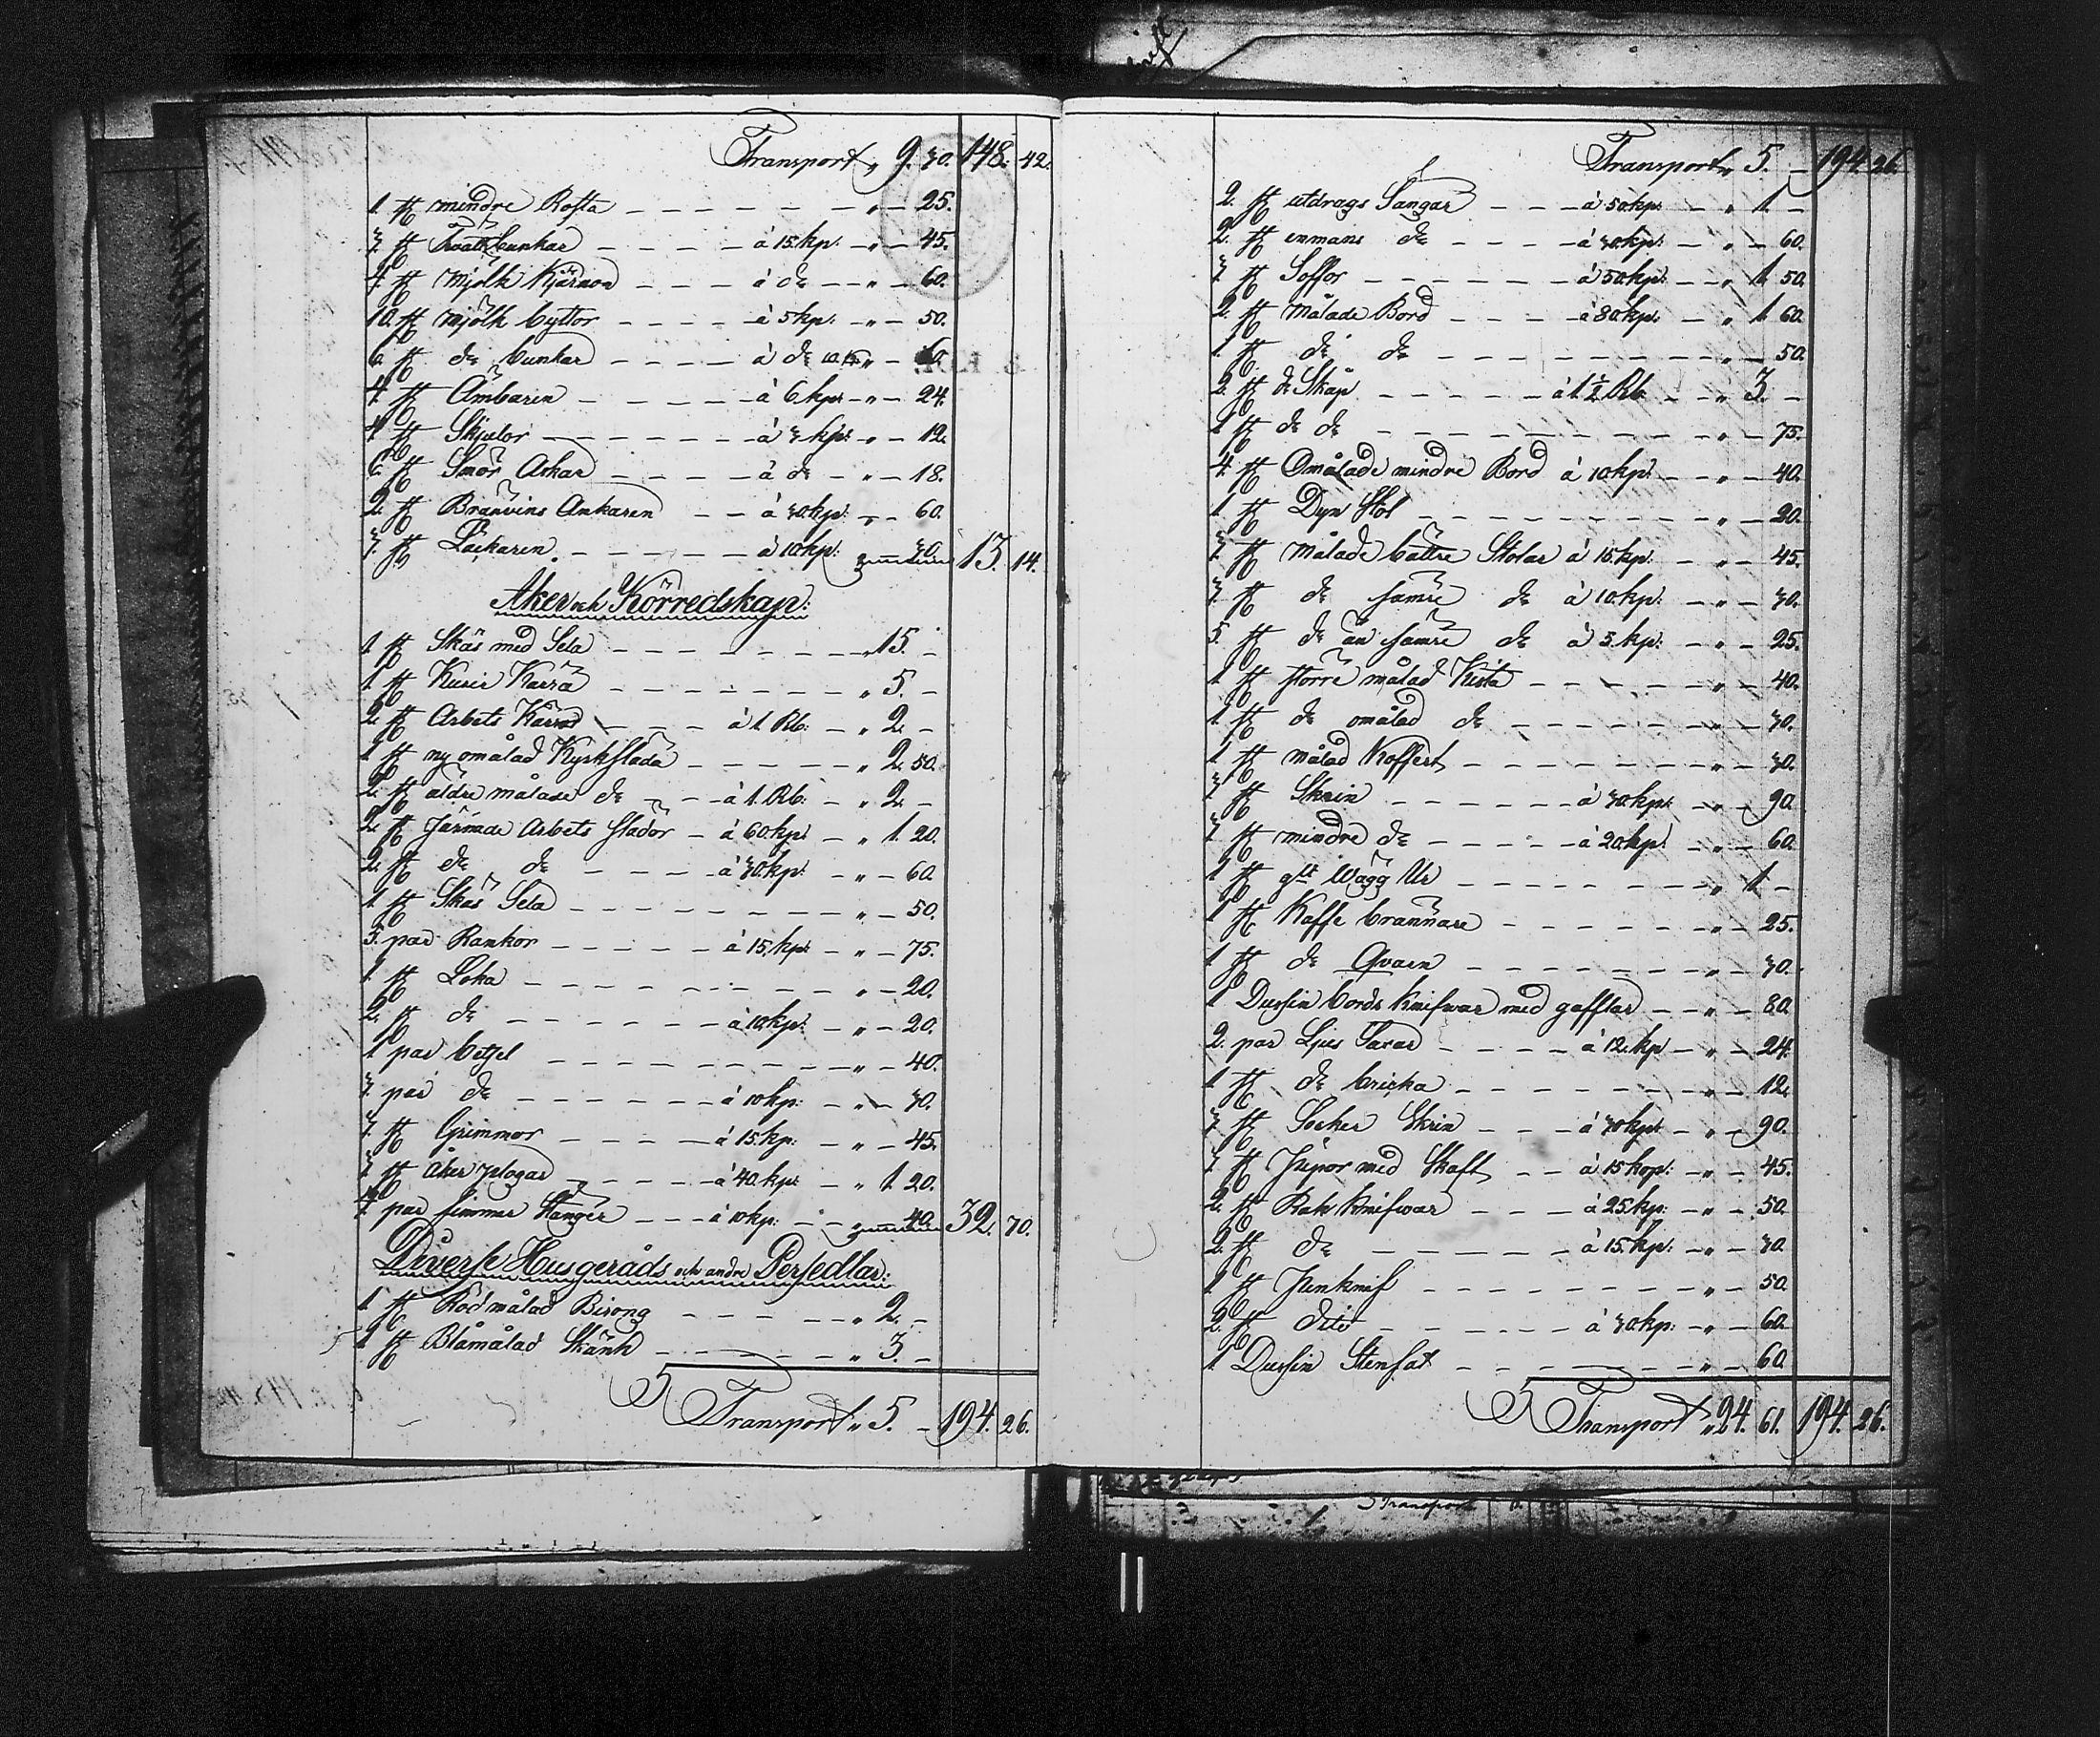 Transport „ 9. 30. 148. 42.
1. st mindre Rosta „ — 25.
3. st Tvättbunkar à 15. kp: „ — 45.
4. st mjölk Kjärnor à do „ — 60.
10. st mjölk byttor à 5 kp: „ — 50.
6. st do bunkar à do 10. K „ — 60.
4. st Ämbaren à 6. kp: „ — 24.
4. st Skjulor à 3 kp: „ — 12.
6. st Smör Askar à do „ — 18.
2. st Branvins Ankaren à 30. kp: „ — 60.
3. st Läckaren à 10 kp: 30. 13. 14.
Åker och Körredskap:
1 st Skäs med Sela „ 15. —
1 st Kurir Kärra „ 5. —
2. st Arbets Kärror à 1. Rb: „ 2. —
1 st ny omålad Kyrkslädä „ 2. 50.
2. st äldre målade do à 1. Rb: „ 2. —
2. st Järnade Arbets slädor à 60. kp: „ 1. 20.
2. st do do à 30. kp: „ — 60.
1 st Skäs Sela „ — 50.
5. par Rankor à 15. kp: „ — 75.
1. st Loka „ — 20.
2. st do à 10 kp: „ — 20.
1 par betzel „ — 40.
3. par do à 10 kp: „ — 30.
3. st Grimmor à 15. kp: „ — 45.
3. st åker plogar à 40. kp: „ 1. 20.
4 par simmer Stänger à 10 kp: 40. 32. 70.
Diverse Husgeråds och andre Persedlar:
1 st Rödmålad Birong „ 2. —
1 st Blåmålad Skänk „ 3. —
Transport „ 5. — 194. 26.
Transport „ 5. — 194. 26.
2. st utdrags Sängar à 50 kp: „ 1. —
2. st enmans do à 30. kp: „ — 60.
3 st Soffor à 50 kp: „ 1. 50.
2. st målade Bord à 80. kp: „ 1. 60.
1. st do do „ — 50.
2. st do Skåp à 1 1/2 Rb. „ 3. —
1 st do do „ — 75.
4 st Omålade mindre Bord à 10. kp: „ — 40.
1 st Dyn Stol „ — 20.
3. st målade bättre Stolar à 15. kp: „ — 45.
3. st do sämre do à 10. kp: „ — 30.
5. st do än sämre do à 5. kp: „ — 25.
1 st större målad Kista „ — 40.
1 st do omålad do „ — 30.
1 st målad Koffert „ — 30.
3 st Skrin à 30. kp: „ — 90.
3 st mindre do à 20. kp: „ — 60.
1 st glt Wägg Ur „ 1. —
1 st Kaffe brännare „ — 25.
1 st do Qvarn „ — 30.
1 Dussin bords Knifwar med gafflar „ — 80.
2. par Ljus Saxar à 12. kp „ — 24.
1 st do bricka „ — 12.
3 st Socker Skrin à 30 kp: „ — 90.
3 st Pipor med Skaft à 15 kop: „ — 45.
2. st Rak Knifwar à 25 kp: „ — 50.
2. st do à 15. kp: „ — 30.
1 st Penknif „ — 50.
2. st dito à 30 kp: „ — 60.
1 Dussin Stenfat „ — 60.
Transport „ 24. 61. 194. 26.